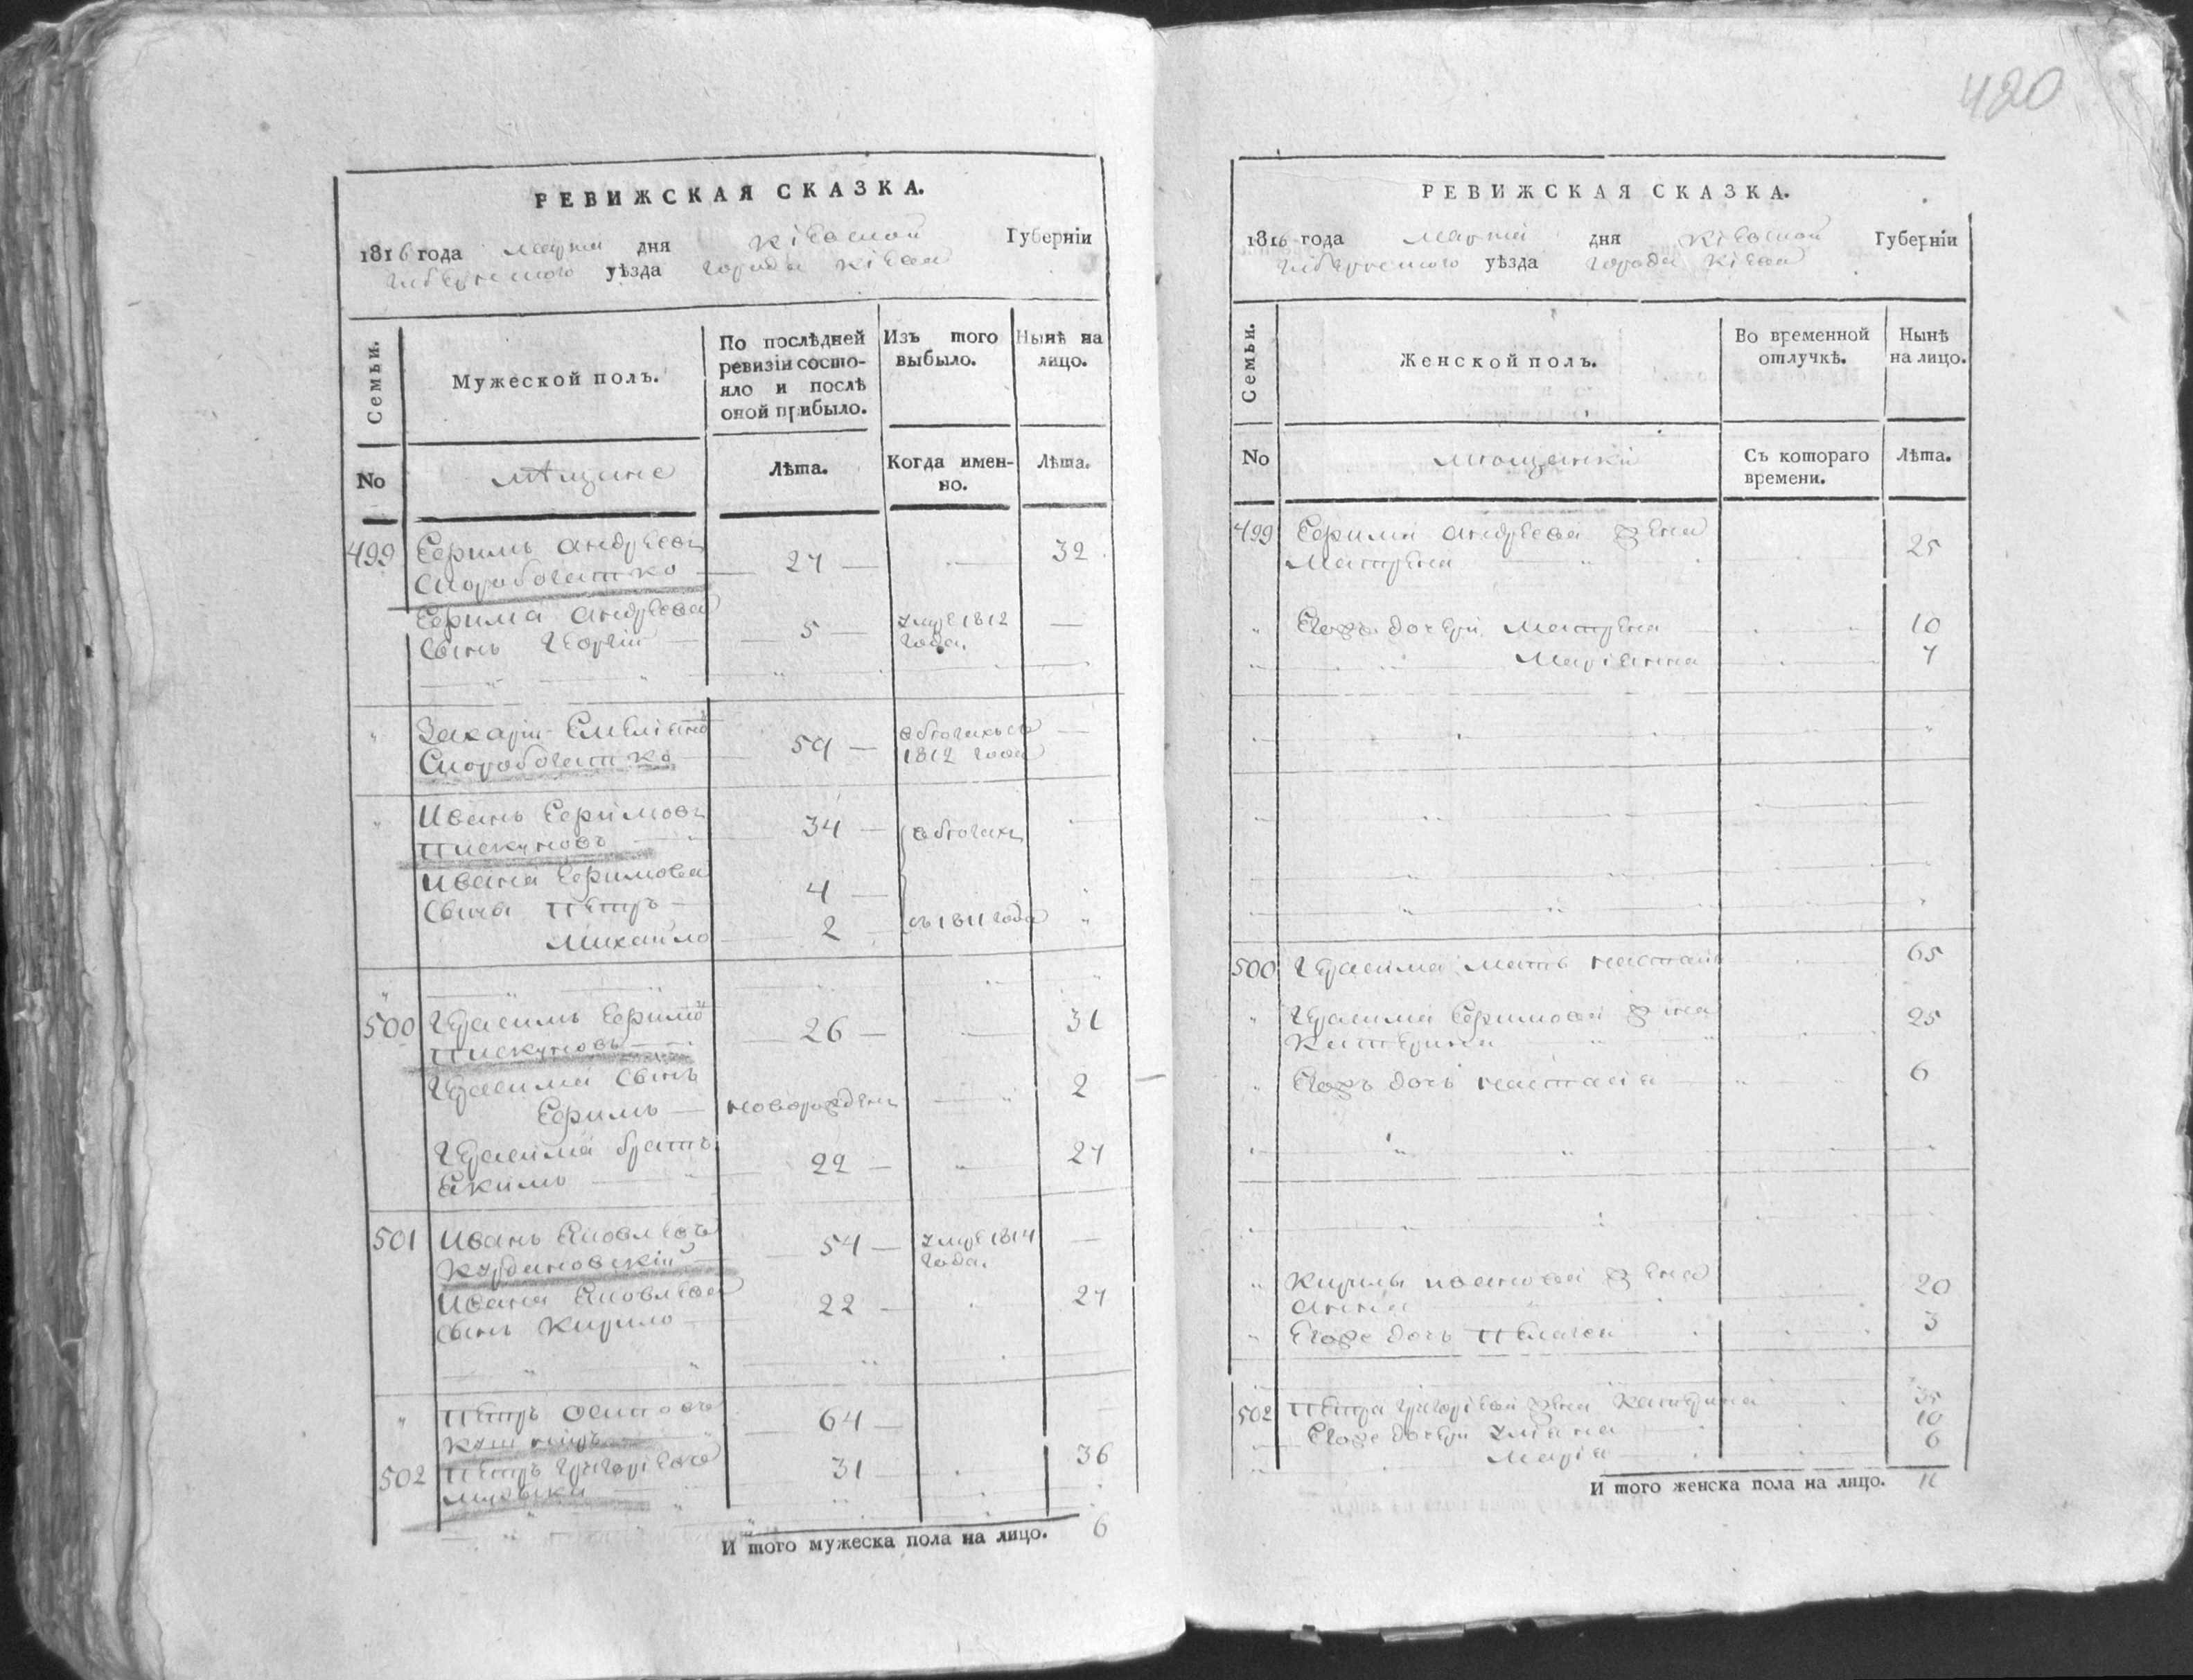 420
РЕВИЖСКАЯ СКАЗКА.
1816 года марта дня Кіевской Губерніи
Губернского уѣзда города Кіева
Семьи.
Мужеской полъ.
По послѣдней ревизіи состояло и послѣ оной прибыло.
Изъ того выбыло.
Нынѣ на лицо.
No
мѣщине
Лѣта.
Когда именно.
Лѣта.
499 Ефимъ Андреевъ
Скоробогатко 27 — 32
Ефима Андреева
Сынъ Георгій — 5 — умре 1812 года. —
Захарій Емеліяно
Скоробогатко 59 — в бегахъ съ 1812 года —
Иванъ Ефимовъ
Пискуновъ 34 — в бегахъ
Ивана Ефимова
Сыны Петръ — 4 —
Михайло 2 съ 1811 года
500 Герасимъ Ефимо
Пискуновъ — 26 — 31
Герасима Сынъ
Ефимъ — новорожденъ 2
Герасима братъ
Екимъ 22 — 27
501 Иванъ Яковлевъ
Курдиновскій 54 — умре 1814 года. —
Ивана Яковлева
Сынъ Кирило 22 — 27
Петръ Осиповъ
Кушниръ 64 —
502 Петръ Григоріевъ 31 36
И того мужеска пола на лицо. 6
РЕВИЖСКАЯ СКАЗКА.
1816 года марта дня Кіевской Губерніи
Губернского уѣзда города Кіева
Семьи.
Женской полъ.
Во временной отлучкѣ.
Нынѣ на лицо.
No
мещанки
Съ котораго времени.
Лѣта.
499 Ефима Андреева жена
Матрена 25
Егожъ дочери Матрена 10
Маріянна 7
500 Герасима мать настасія 65
Герасима Ефимова жена
Катерина 25
Егожъ дочь настасія 6
Кирилы иванова жена
анна 20
Егоже дочь Пелагея 3
502 Петра Григоріева жена Катерина 35
Егоже дочери Уліяна 10
Марія 6
И того женска пола на лицо. 11